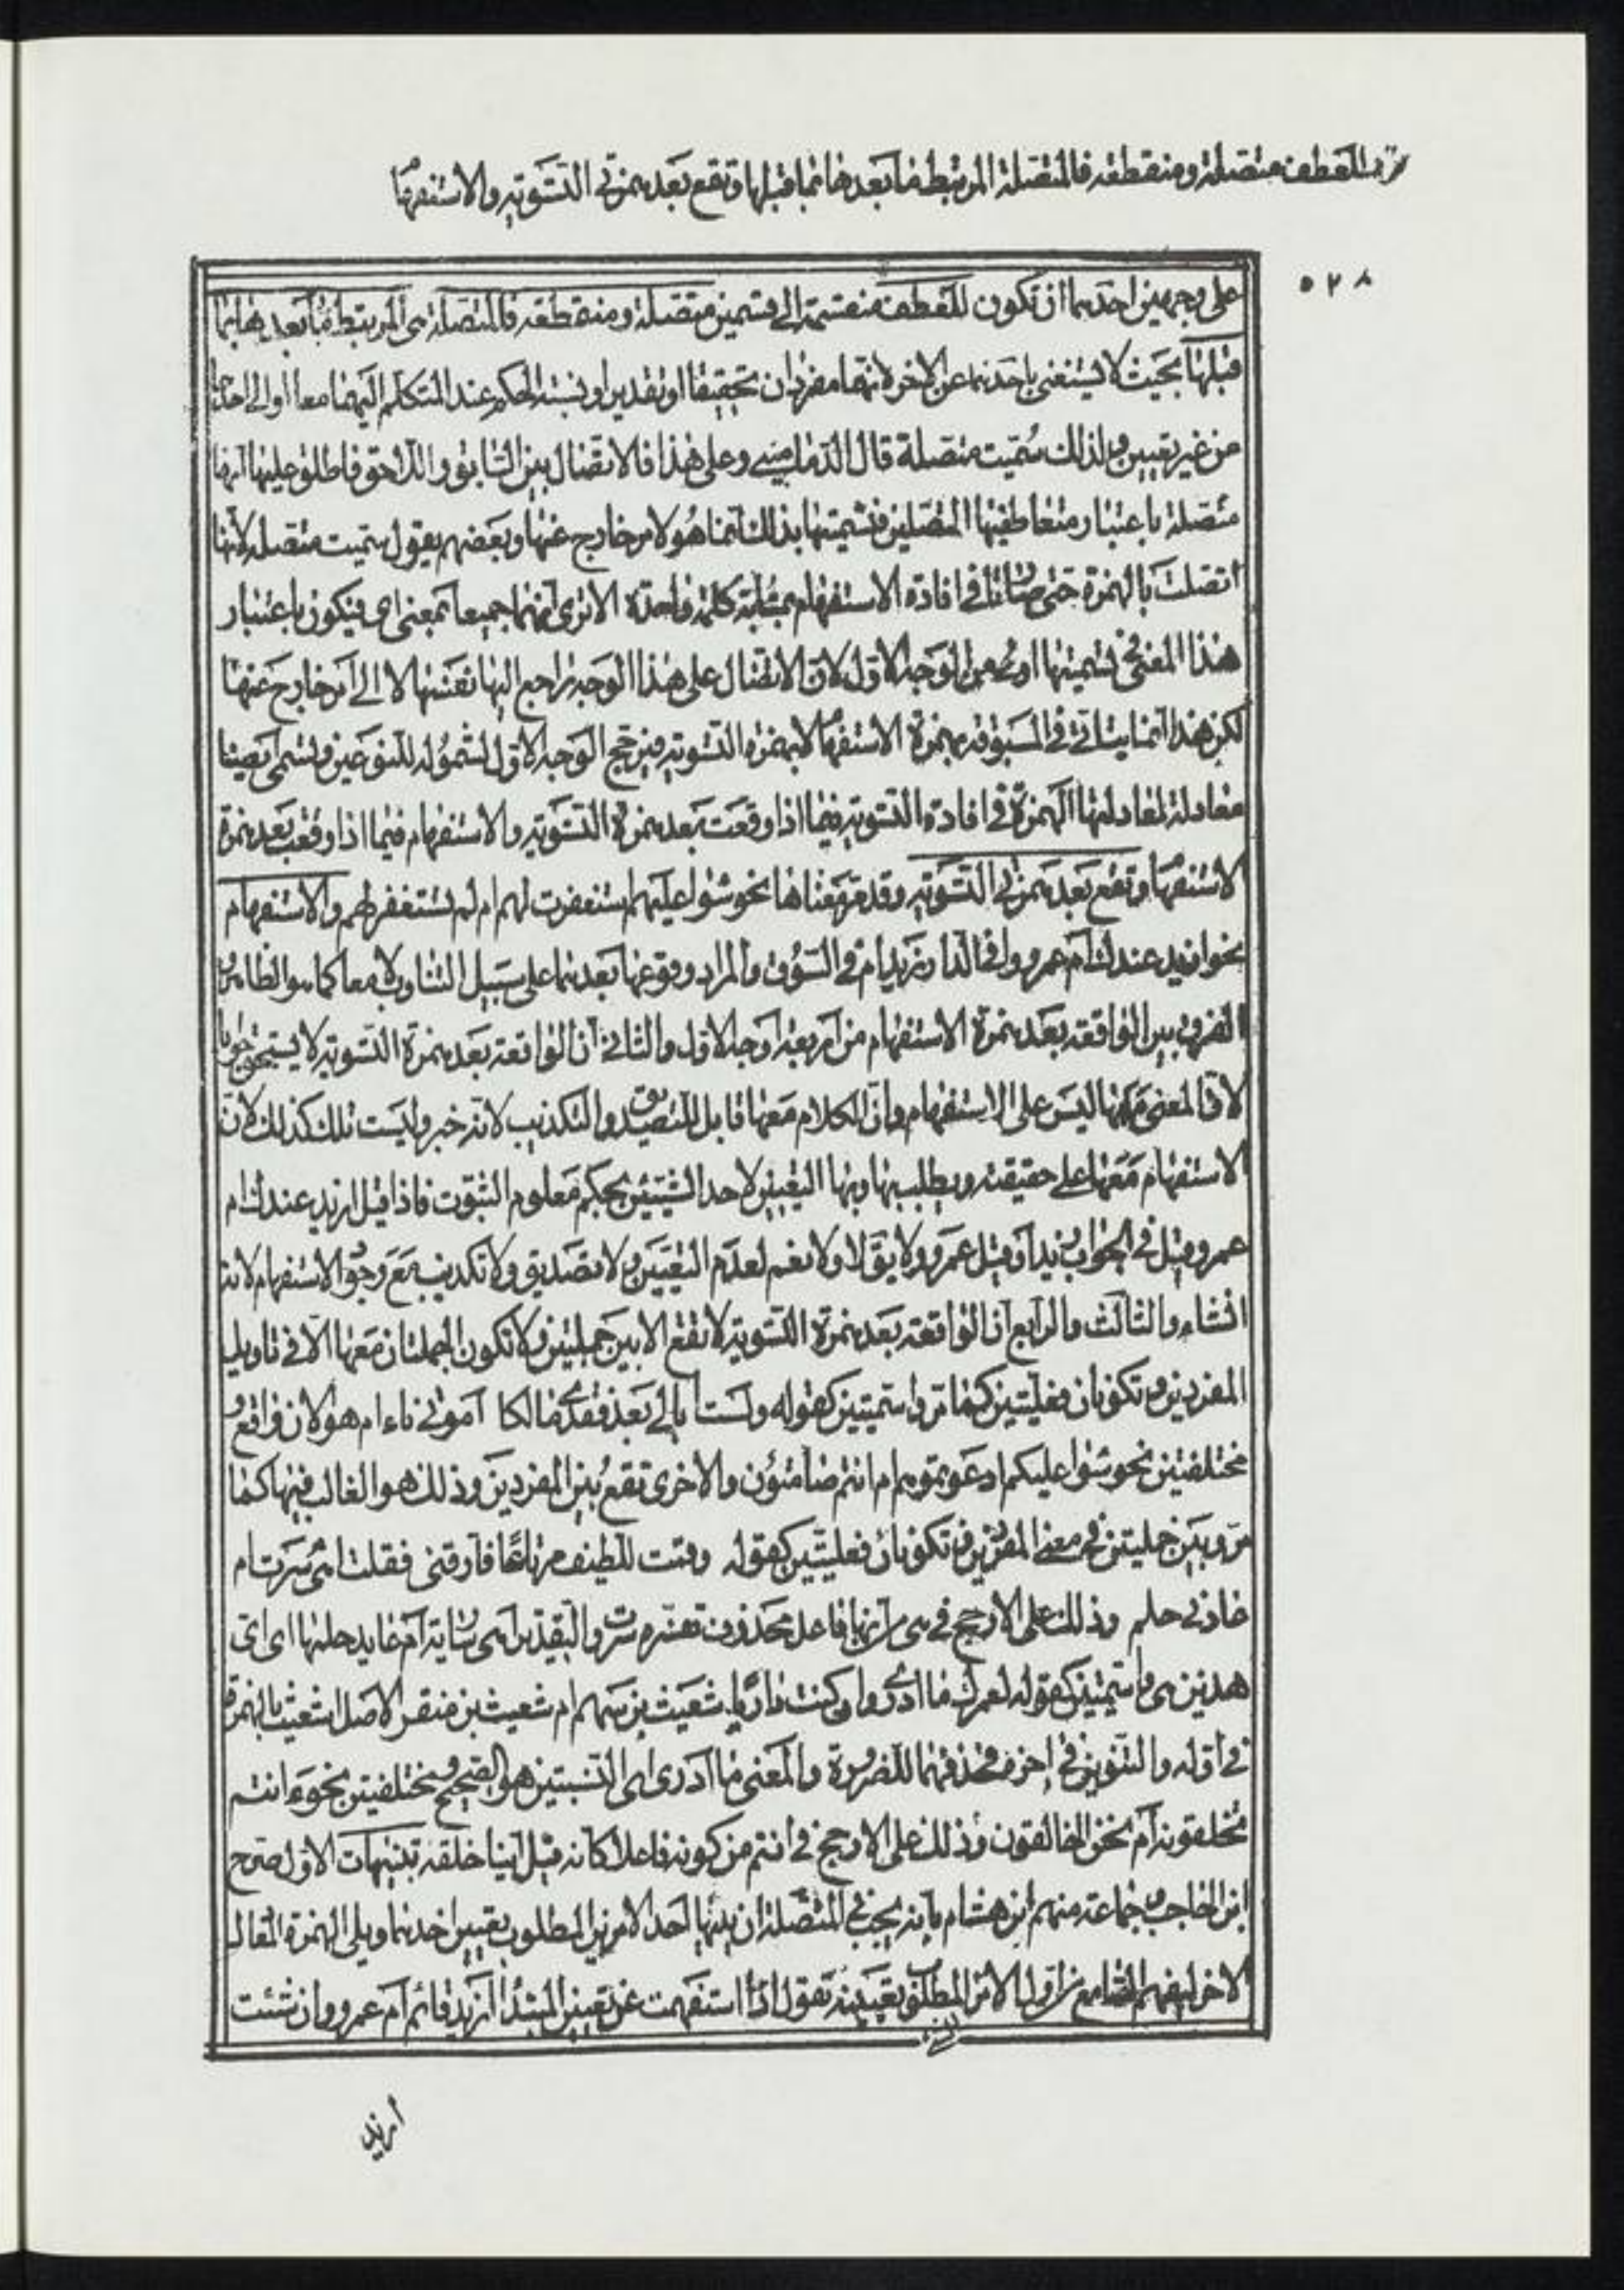 للعطف متصلة ومنقطعة فالمتصلة المرتبط ما بعدها بما قبلها وتقع بعد همزتي التسوية والاستفهام
٥٢٨
على وجهين احدهما ان تكون للعطف منقسمة الى قسمين متصلة ومنقطعة فالمتصلة هى المرتبط ما بعدها بما
قبلها بحيث لا يستغنى باحدهما عن الاخر لانهما مفردان تحقيقا او تقديرا ونسبة الحكم عند المتكلم اليهما معا او الى احدهما
من غير تعيين ولذلك سُمّيت متصلة قال الدمامينى وعلى هذا فالاتصال بين السابق واللاحق فاطلق عليها انها
متصلة باعتبار متعاطفيها المتصلين فتسميتها بذلك انما هو لامر خارج عنها وبعضهم يقول سميت متصلة لانها
اتصلت بالهمزة حتى صارتا فى افادة الاستفهام بمثابة كلمة واحدة الا ترى انهما جميعا بمعنى اى فيكون باعتبار
هذا المعنى فى تسميتها اولى من الوجه الاول لان الاتصال على هذا الوجه راجع اليها نفسها لا الى امر خارج عنها
لكن هذا انما يتاتى فى المسبوقة بهمزة الاستفهام لا بهمزة التسوية فيرجح الوجه الاول لشموله للنوعين وتسمى ايضا
معادلة لمعادلتها الهمزة فى افادة التسوية فيما اذا وقعت بعد همزة التسوية والاستفهام فيما اذا وقعت بعد همزة
الاستفهام وتقع بعد همزتى التسوية وقد مر معناها نحو سواء عليهم استغفرت لهم ام لم تستغفر لهم والاستفهام
نحو ازيد عندك ام عمرو وافى الدار زيد ام فى السوق والمراد وقوعها بعدهما على سبيل التناوب لا معا كما هو الظاهر و
الفرق بين الواقعة بعد همزة الاستفهام من اربعة اوجه الاول والثانى ان الواقعة بعد همزة التسوية لا يستحق جوابا
لان المعنى معها ليس على الاستفهام وان الكلام معها قابل للتصديق والتكذيب لانه خبر وليست تلك كذلك لان
الاستفهام معها على حقيقته ويطلب بها وبها التعيين لاحد الشيئين بحكم معلوم الثبوت فاذا قيل ازيد عندك ام
عمرو قيل فى الجواب زيد او قيل عمرو ولا يقال لا ولا نعم لعدم التعيين ولا تصديق ولا تكذيب مع وجود الاستفهام لانه
انشاء والثالث والرابع ان الواقعة بعد همزة التسوية لا تقع الا بين جملتين ولا تكون الجملتان معها الا فى تاويل
المفردين وتكونان فعليتين كما مر واسميتين كقوله ولست ابالى بعد فقدى مالكا اموتى ناء ام هو الان واقع و
مختلفتين نحو سواء عليكم ادعوتموهم ام انتم صامتون والاخرى تقع بين المفردين وذلك هو الغالب فيها كما
مر وبين جملتين فى معنى المفردين وتكونان فعليتين كقوله وقمت للطيف مرتاعًا فارقنى فقلت اهى سرت ام
عادنى حلم وذلك على الارجح فى هى من انها فاعل محذوف تفسره سرت والتقدير اهى سارية ام عايد حلمها اى اى
هذين هى واسميتين كقوله لعمرك ما ادرى وان كنت داريا شعيث بن سهم ام شعيث بن منقر الاصل اشعيث بالهمزة
فى اوله والتنوين فى اخره فحذفهما للضرورة والمعنى ما ادرى اى النسبتين هو الصحيح ومختلفتين نحو ءانتم
تخلقونه ام نحن الخالقون وذلك على الارجح فى انتم من كونه فاعلا كانه قيل اينا خلقه تنبيهات الاول صرح
ابن الحاجب وجماعة منهم ابن هشام بانه يجب فى المتصلة ان يليها احد الامرين المطلوب تعيين احدهما ويلى الهمزة المعادل
الاخر ليفهم السامع من اول الامر المطلوب تعيينه تقول اذا استفهمت عن تعيين المبتدا ازيد قائم ام عمرو وان شئت
ازيد